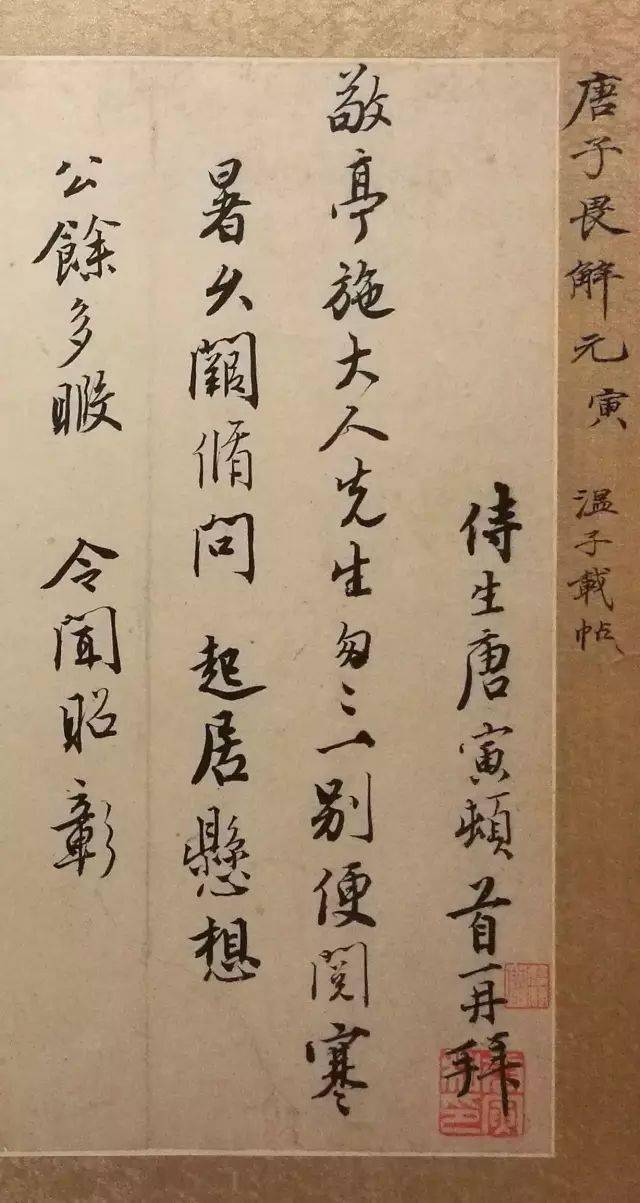 唐子畏解元寅 温子載帖
侍生唐寅頓首再拜
敬亭施大人先生匆〻一别便閲寒
暑久闊脩問 起居懸想
公餘多暇 令聞昭彰